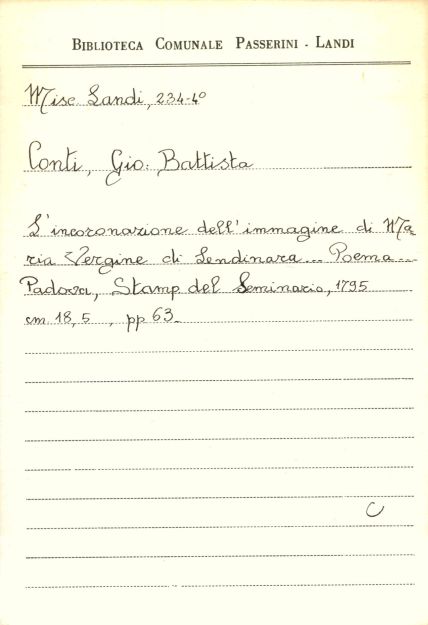 BIBLIOTECA COMUNALE PASSERINI - LANDI
Misc Landi, 234-4º
Conti, Gio: Battista
L'incoronazione dell'immagine di Ma
ria Vergine di Lendinara... Poema...
Padova, Stamp. del Seminario, 1795
cm 18,5 , pp 63_
C